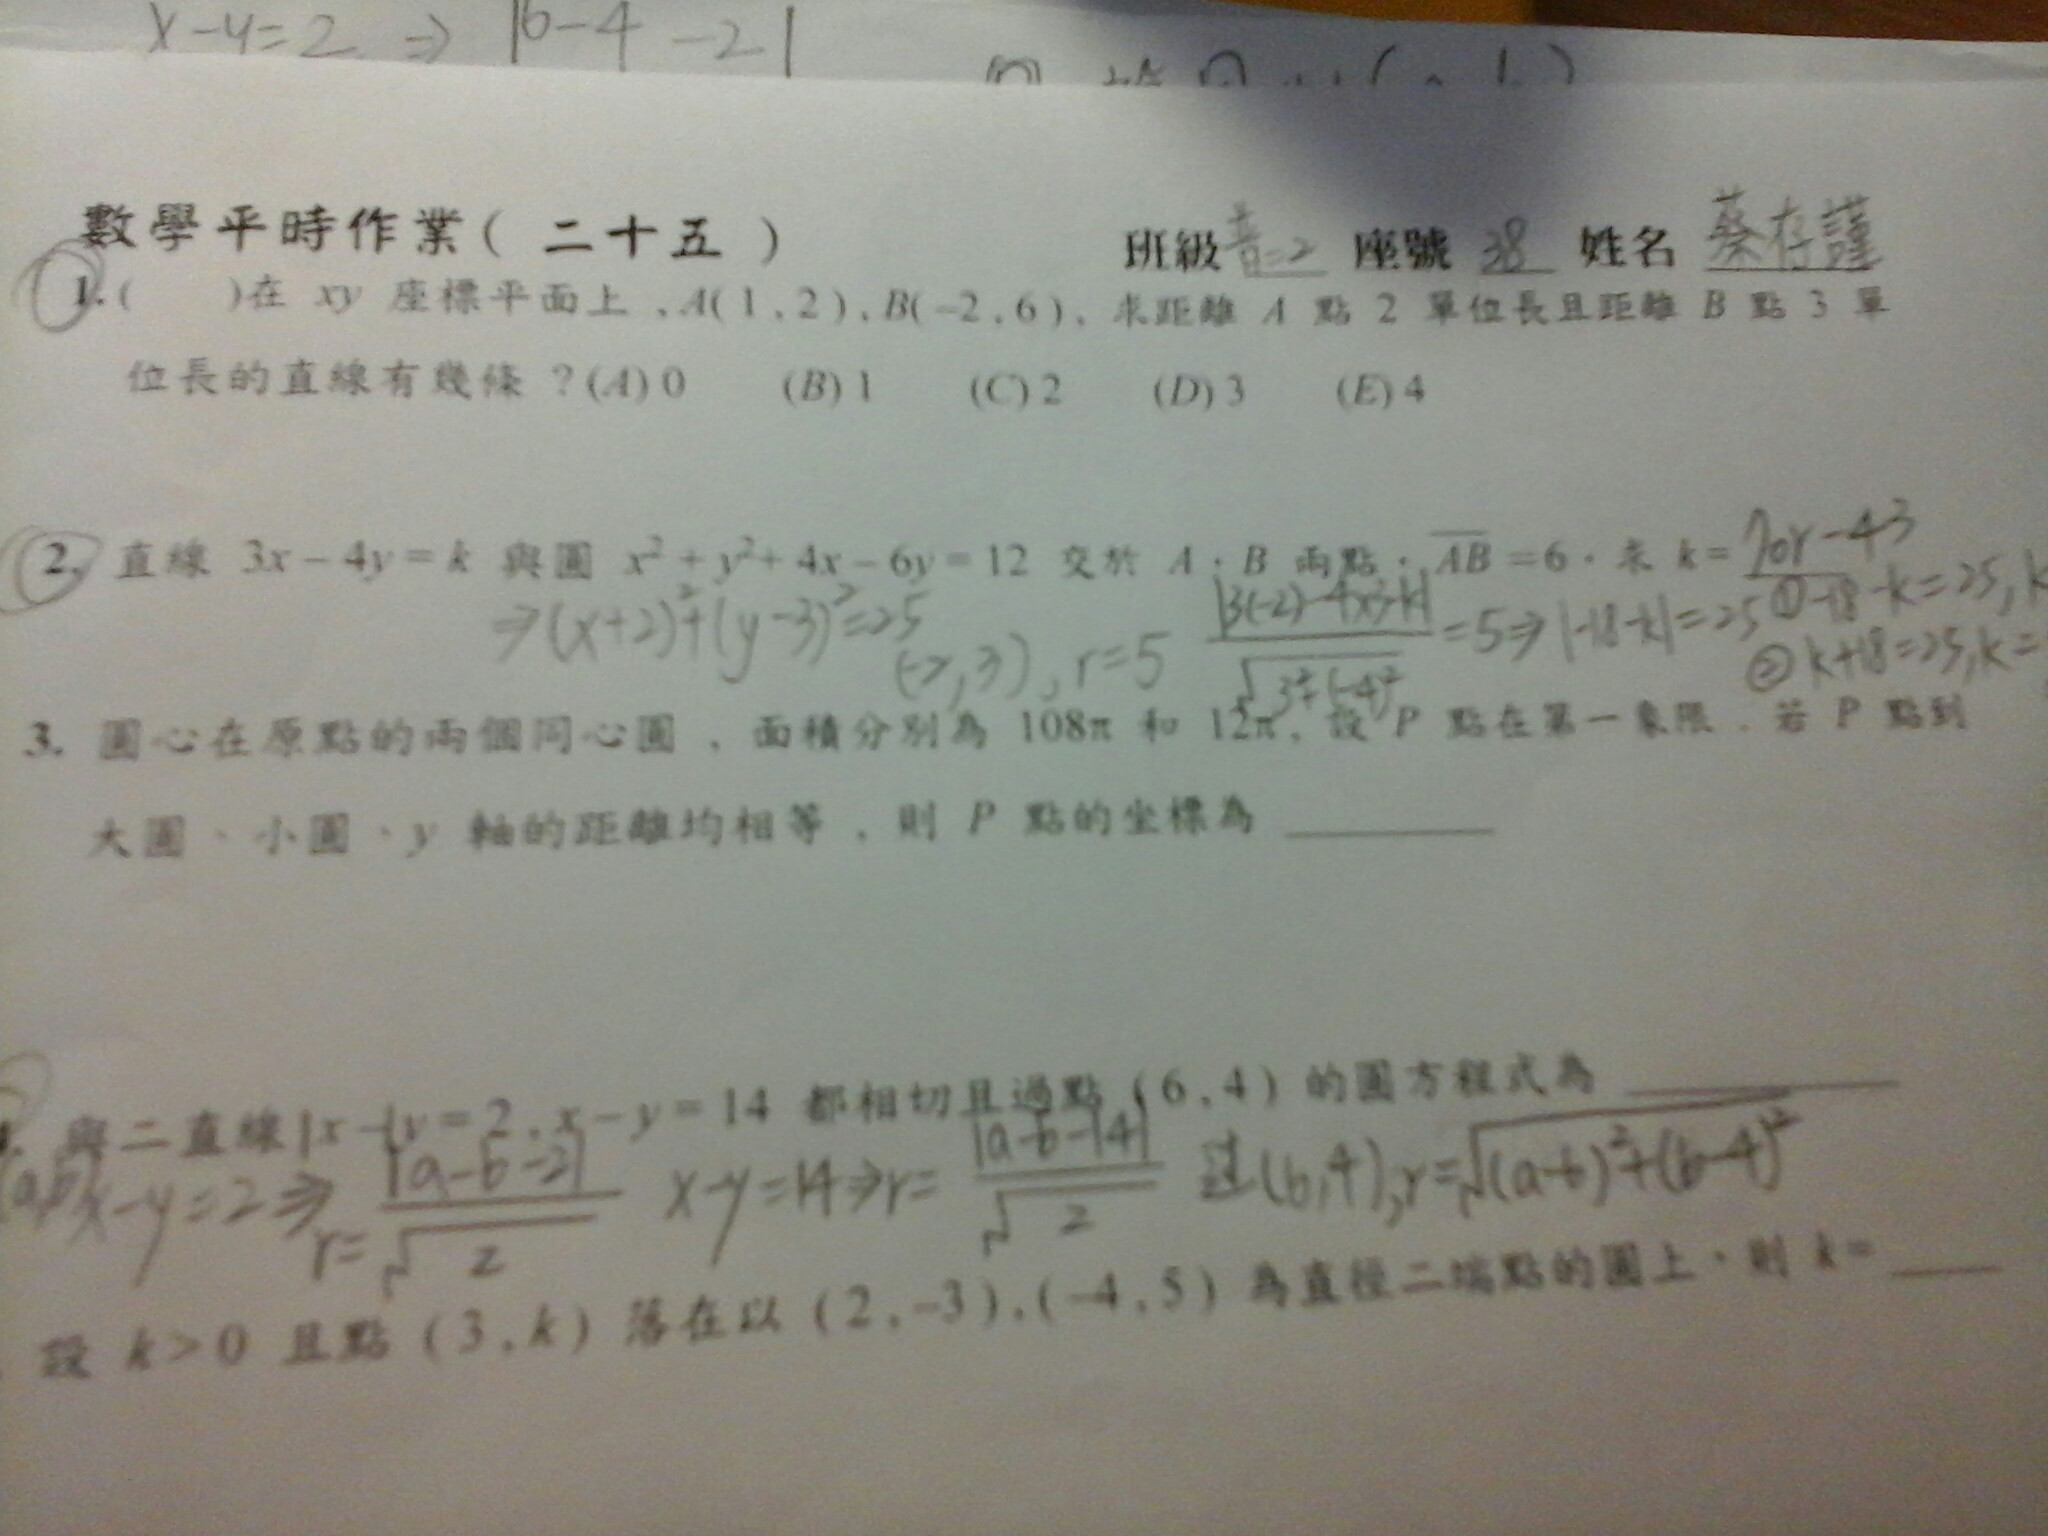 x-y=2 ⇒ |6-4-2|
數學平時作業( 二十五 ) 班級 座號 38 姓名 蔡存謹
1.( )在 xy 座標平面上,A(1,2),B(-2,6),求距離 A 點 2 單位長且距離 B 點 3 單
位長的直線有幾條?(A)0 (B)1 (C)2 (D)3 (E)4
2. 直線 3x-4y=k 與圓 x²+y²+4x-6y=12 交於 A,B 兩點,AB=6,求 k= 7or-43
⇒(x+2)²+(y-3)²=25 (-2,3),r=5 |3(-2)-4x3-k|/√3²+(-4)²=5⇒|-18-k|=25 ①-18-k=25,k
②k+18=25,k=
3. 圓心在原點的兩個同心圓,面積分別為 108π 和 12π,設 P 點在第一象限,若 P 點到
大圓、小圓、y 軸的距離均相等,則 P 點的坐標為
與二直線 x-y=2,x-y=14 都相切且過點(6,4)的圓方程式為
(a,b) x-y=2⇒r=|a-b-2|/√2 x-y=14⇒r=|a-b-14|/√2 过(6,4),r=√(a-6)²+(b-4)²
設 k>0 且點(3,k)落在以(2,-3),(-4,5)為直徑二端點的圓上,則 k=